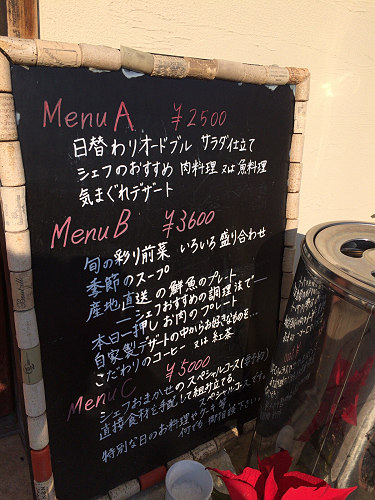 Menu A ¥2500
日替わりオードブル サラダ仕立て
シェフのおすすめ 肉料理 又は 魚料理
気まぐれデザート
Menu B ¥3600
旬の彩り前菜 いろいろ盛り合わせ
季節のスープ
産地直送の鮮魚のプレート
―シェフおすすめの調理法で―
本日一押しお肉のプレート
自家製デザートの中からお好きなものを…
こだわりのコーヒー 又は 紅茶
Menu C ¥5000
シェフおまかせのスペシャルコース(要予約)
直接食材を手配して組み立てる、
スペシャルコースです。
特別な日のお料理やケーキ等
何でも御相談下さい。